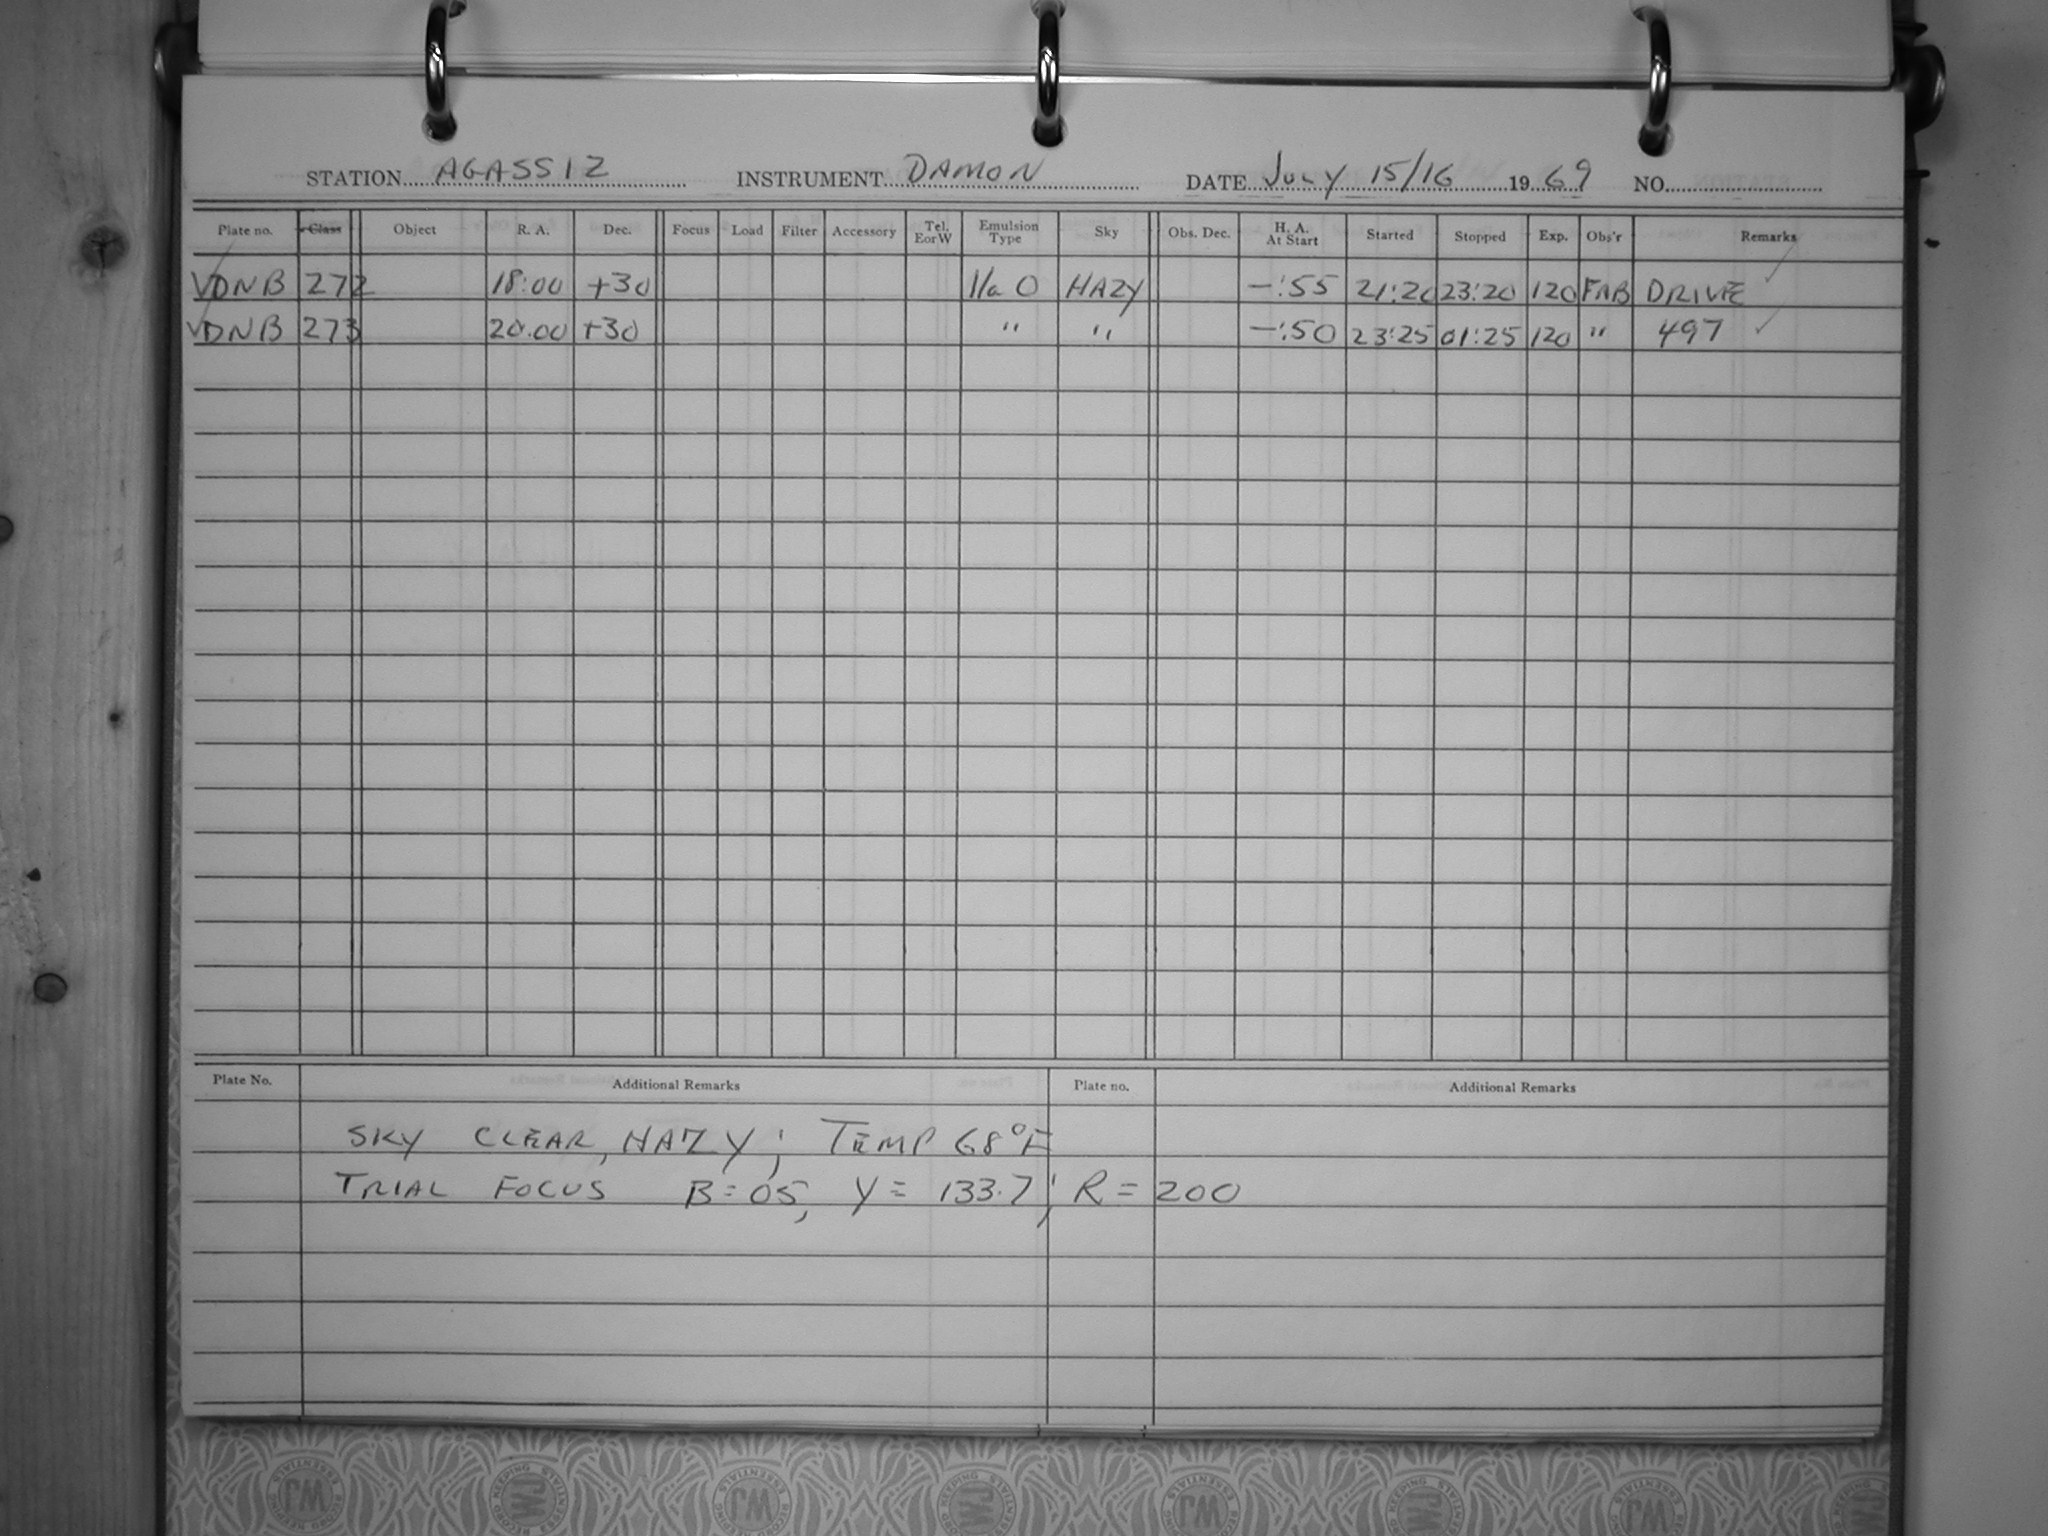 STATION AGASSIZ INSTRUMENT DAMON DATE July 15/16 1969 NO.
Plate no. Class Object R. A. Dec. Focus Load Filter Accessory Tel. E or W Emulsion Type Sky Obs. Dec. H. A. At Start Started Stopped Exp. Obs'r Remarks
DNB 272 18:00 +30 IIa O HAZY -:55 21:20 23:20 120 DRIVE
DNB 273 20:00 +30 " " -:50 23:25 01:25 120 " 497
Plate No. Additional Remarks Plate no. Additional Remarks
SKY CLEAR, HAZY; TEMP 68°F
TRIAL FOCUS B=05, Y= 133.7; R=200